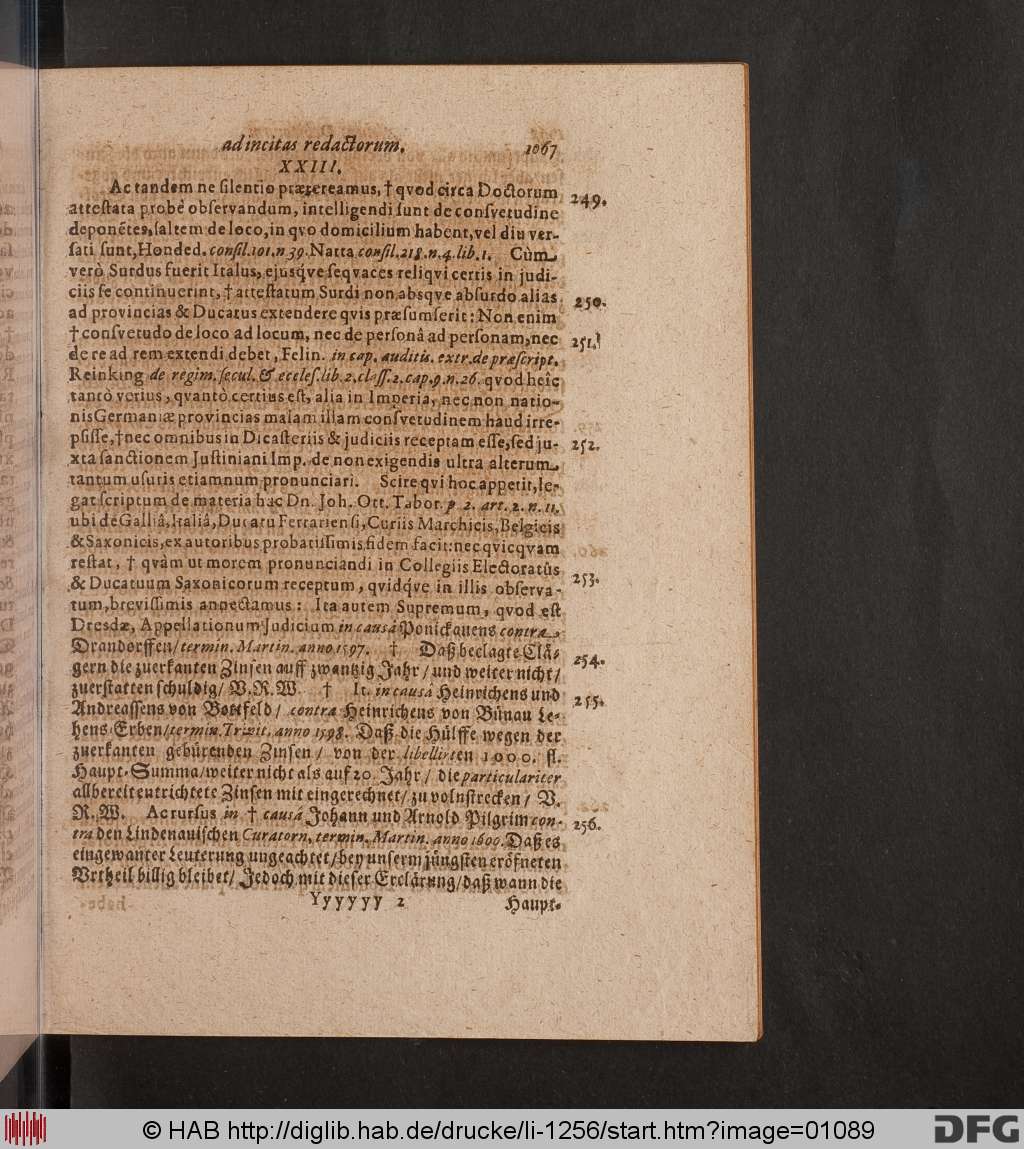 ad incitas redactorum.
1067
XXIII.
Ac tandem ne silentio prætereamus, † qvod circa Doctorum
249.
attestata probè observandum, intelligendi sunt de consvetudine
deponẽtes, saltem de loco, in qvo domicilium habent, vel diu ver-
sati sunt, Honded. consil. 101. n 39. Natta consil. 218. n. 4. lib. 1. Cùm
verò Surdus fuerit Italus, ejusq́ve seqvaces reliqvi certis in judi-
ciis se continuerint, † attestatum Surdi non absqve absurdo alias
250.
ad provincias & Ducatus extendere qvis præsumserit: Non enim
† consvetudo de loco ad locum, nec de personâ ad personam, nec
251.
de re ad rem extendi debet, Felin. in cap. auditis. extr. de præscript.
Reinking de regim. secul. & eccles. lib. 2. class. 2. cap. 9. n. 26. qvod heîc
tantò verius, qvantò certius est, alia in Imperia, nec non natio-
nis Germaniæ provincias malam illam consvetudinem haud irre-
psisse, † nec omnibus in Dicasteriis & judiciis receptam esse, sed ju-
252.
xta sanctionem Justiniani Imp. de non exigendis ultra alterum
tantum usuris etiamnum pronunciari. Scire qvi hoc appetit, le-
gat scriptum de materia hac Dn. Joh. Ott. Tabor. p 2. art. 2. n. 11.
ubi de Galliâ, Italiâ, Ducatu Ferrariensi, Curiis Marchicis, Belgicis
& Saxonicis, ex autoribus probatissimis fidem facit: nec qvicqvam
restat, † qvàm ut morem pronunciandi in Collegiis Electoratûs
253.
& Ducatuum Saxonicorum receptum, qvidq́ve in illis observa-
tum, brevissimis annectamus: Ita autem Supremum, qvod est
Dresdæ, Appellationum Judicium in causâ Ponickauens contra
Drandorffen/ termin. Martin. anno 1597. † Daß beclagte Clä-
254.
gern die zuerkanten Zinsen auff zwantzig Jahr/ und weiter nicht/
zuerstatten schuldig/ V. R. W. † It. in causâ Heinrichens und
255.
Andreassens von Bottfeld/ contra Heinrichens von Bünau Le-
hens Erben/ termin. Trinit. anno 1598. Daß die Hülffe wegen der
zuerkanten gebürenden Zinsen/ von der libellirten 1000. fl.
Haupt-Summa/ weiter nicht als auf 20. Jahr/ die particulariter
allbereit entrichtete Zinsen mit eingerechnet/ zu volnstrecken/ V.
R. W. Ac rursus in † causâ Johann und Arnold Pilgrim con-
256.
tra den Lindenauischen Curatorn, termin. Martin. anno 1600. Daß es
eingewanter Leuterung ungeachtet/ bey unserm jüngsten eröfneten
Vrtheil billig bleibet/ Jedoch mit dieser Erclärung/ daß wann die
Yyyyyy 2
Haupt-
© HAB http://diglib.hab.de/drucke/li-1256/start.htm?image=01089
DFG